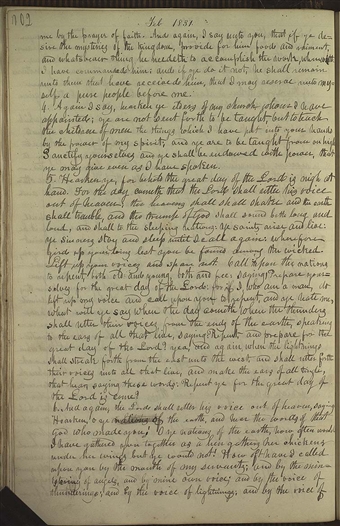 102
Feb 1831.
me by the prayer of faith. And again, I say unto you, that if ye de-
sire the mysteries of the kingdom, provide for him food and raiment,
and whatsoever thing he needeth to accomplish the work, wherewith
I have commanded him; and if ye do it not, he shall remain
unto them that have received him, that I may reserve unto my-
self a pure people before me.
4. Again I say, hearken ye elders of my church whom I have
appointed; ye are not sent forth to be taught, but to teach
the children of men the things which I have put into your hands
by the power of my spirit; and ye are to be taught from on high
Sanctify yourselves and ye shall be endowed with power, that
ye may give even as I have spoken.
5. Hearken ye, for behold the great day of the Lord is nigh at
hand. For the day cometh that the Lord shall utter his voice
out of heaven; the heavens shall shake and the earth
shall tremble, and the trump of God shall sound both long and
loud, and shall to the sleeping nations; Ye saints arise and live:
Ye sinners stay and sleep until I call again: wherefore
gird up your loins lest ye be found among the wicked.
Lift up your voices and spare not. Call upon the nations
to repent, both old and young, both bond and free; saying Prepare your-
selves for the great day of the Lord: for if I, who am a man, do
lift up my voice and call upon you to repent, and ye hate me,
what will ye say when the day cometh when the thunders
shall utter their voices from the ends of the earth, speaking
to the ears of all that live, saying: Repent and prepare for the
great day of the Lord; yea, and again when the lightnings
shall streak forth from the east unto the west and shall utter forth
their voices unto all that live, and make the ears of all tingle,
that hear, saying these words: Repent ye for the great day of
the Lord is come!
6. And again, the Lord shall utter his voice out of heaven, say-
Hearken, O ye nations of the earth, and hear the words of that
God who made you. O ye nations of the earth, how often would
I have gathered you together as a hen gathereth her chickens
under her wings, but ye would not! How oft have I called
upon you by the mouth of my servants; and by the min-
istering of angels, and by mine own voice, and by the voice of
thunderings, and by the voice of lightnings, and by the voice of